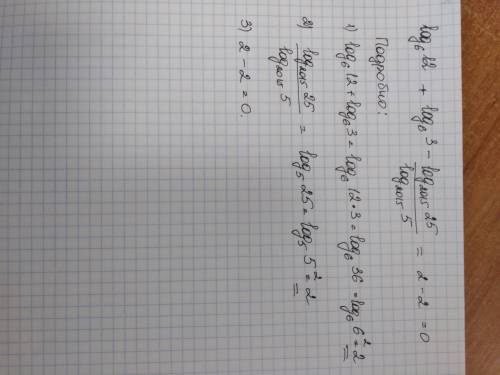 log₆12 + log₆3 − log₂₀₁₅25 / log₂₀₁₅5 = 2 − 2 = 0
Подробно:
1) log₆12 + log₆3 = log₆12·3 = log₆36 = log₆6² = 2
2) log₂₀₁₅25 / log₂₀₁₅5 = log₅25 = log₅5² = 2
3) 2 − 2 = 0.